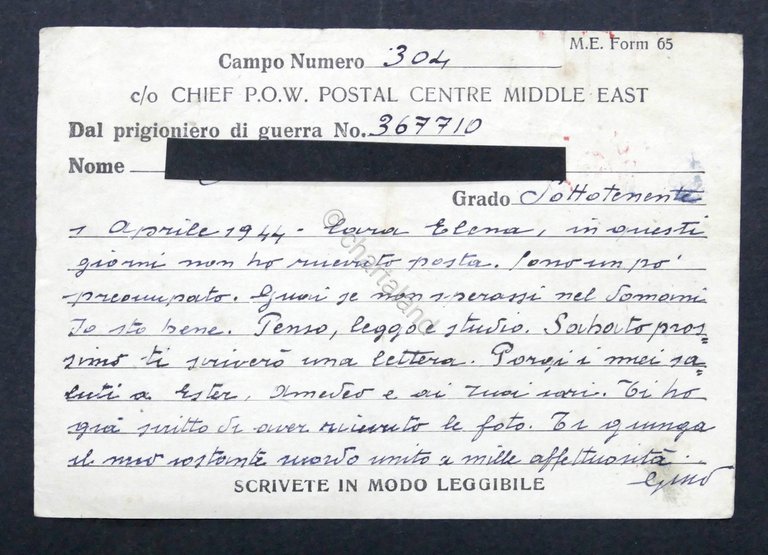 M.E. Form 65
Campo Numero 304
c/o CHIEF P.O.W. POSTAL CENTRE MIDDLE EAST
Dal prigioniero di guerra No. 367710
Nome
Grado Sottotenente
1 Aprile 1944 - Cara Elena, in questi
giorni non ho ricevuto posta. Sono un po'
preoccupato. Guai se non sperassi nel domani
Io sto bene. Penso, leggo e studio. Sabato pros=
simo ti scriverò una lettera. Porgi i miei sa=
luti a Ester, Amedeo e ai tuoi cari. Ti ho
già scritto di aver ricevuto le foto. Ti giunga
il mio costante ricordo unito a mille affettuosità
Gino
SCRIVETE IN MODO LEGGIBILE
© chartaland